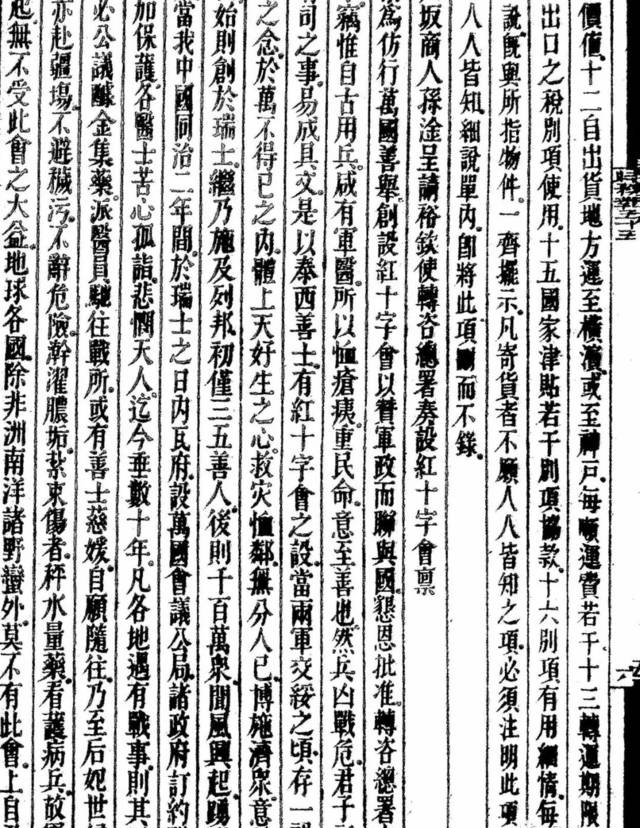 價值十二自出貨地方運至橫濱或至神戸每噸運費若干十三轉運期限
出口之稅別項使用十五國家津貼若干別項協款十六別項有用細情每
說旣與所指物件一齊擺示凡寄貨者不願人人皆知之項必須注明此項
人人皆知細說單內卽將此項刪而不錄
坂商人孫淦呈請裕欽使轉咨總署奏設紅十字會禀
爲仿行萬國善舉創設紅十字會以贊軍政而聯與國懇恩批准轉咨總署
竊惟自古用兵咸有軍醫所以恤瘡痍重民命意至善也然兵凶戰危君子
司之事易成具文是以泰西善士有紅十字會之設當兩軍交綏之頃存一
之念於萬不得已之內體上天好生之心救災恤鄰無分人已博施濟眾意
始則創於瑞士繼乃施及列邦初僅三五善人後則千百萬衆聞風興起踴
當我中國同治二年間於瑞士之日內瓦府設萬國會議公局諸政府訂約
加保護各醫士苦心孤詣悲憫天人迄今垂數十年凡各地遇有戰事則其
必公議醵金集藥派醫員馳往戰所或有善士慈媛自願隨往乃至后妃世
亦赴疆塲不避穢污不辭危險幹濯膿垢紮束傷者秤水量藥看護病兵故
起無不受此會之大益地球各國除非洲南洋諸野蠻外莫不有此會上自
五十三
六